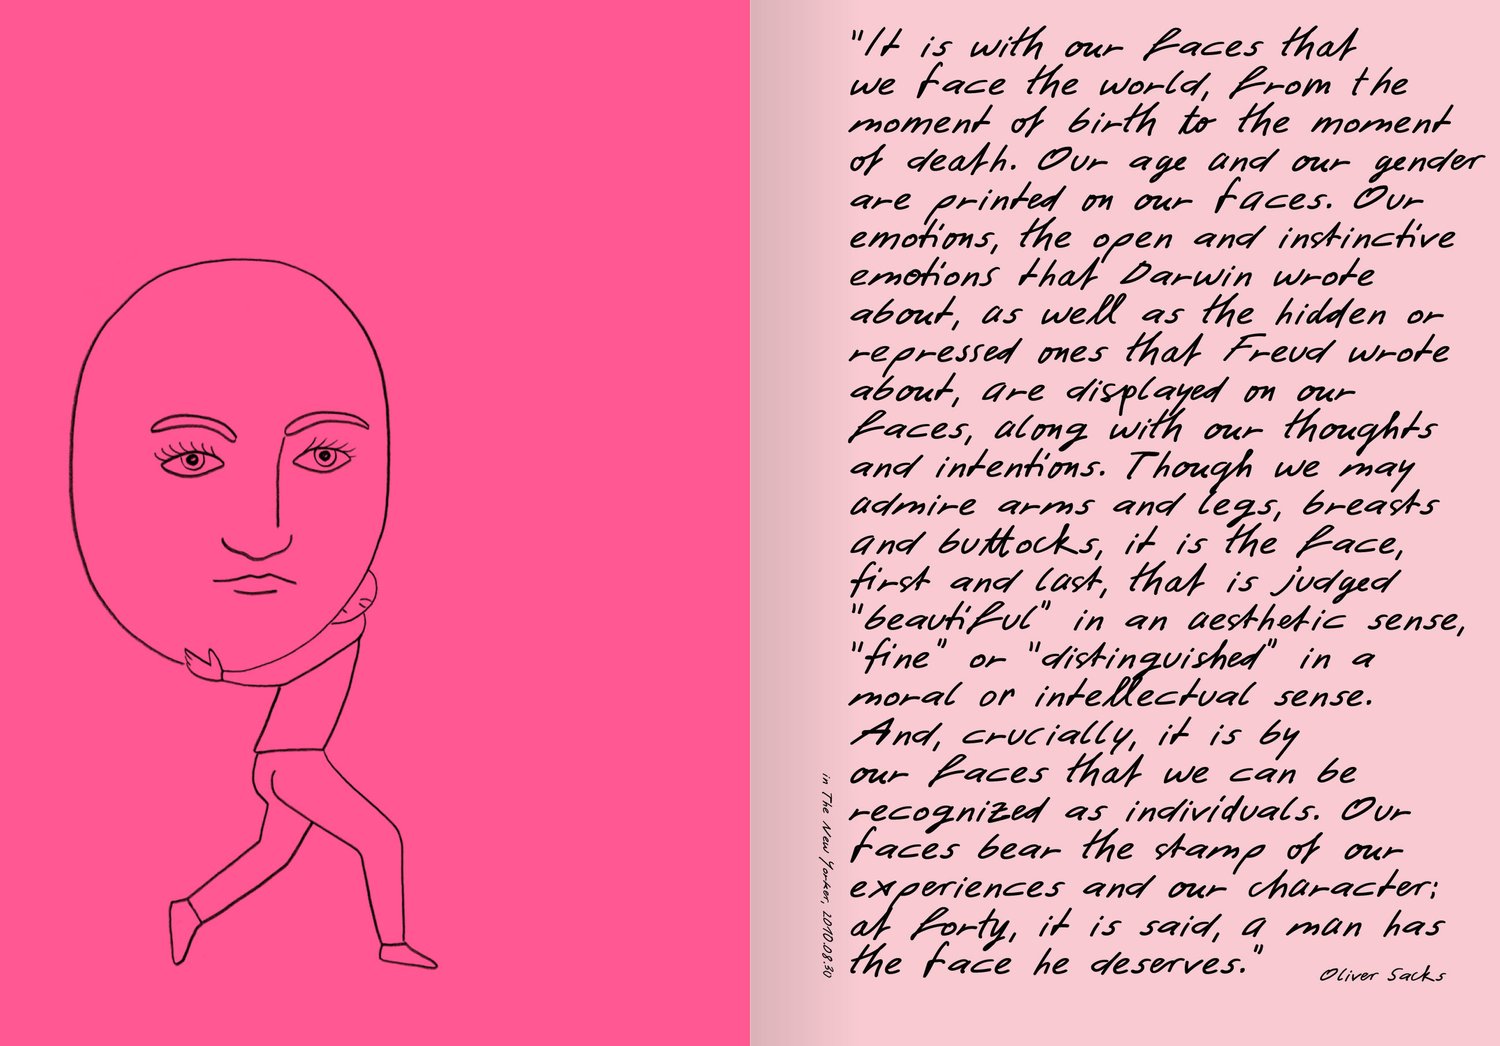 "It is with our faces that
we face the world, from the
moment of birth to the moment
of death. Our age and our gender
are printed on our faces. Our
emotions, the open and instinctive
emotions that Darwin wrote
about, as well as the hidden or
repressed ones that Freud wrote
about, are displayed on our
faces, along with our thoughts
and intentions. Though we may
admire arms and legs, breasts
and buttocks, it is the face,
first and last, that is judged
"beautiful" in an aesthetic sense,
"fine" or "distinguished" in a
moral or intellectual sense.
And, crucially, it is by
our faces that we can be
recognized as individuals. Our
faces bear the stamp of our
experiences and our character;
at forty, it is said, a man has
the face he deserves."
Oliver Sacks
in The New Yorker, 2010.08.30